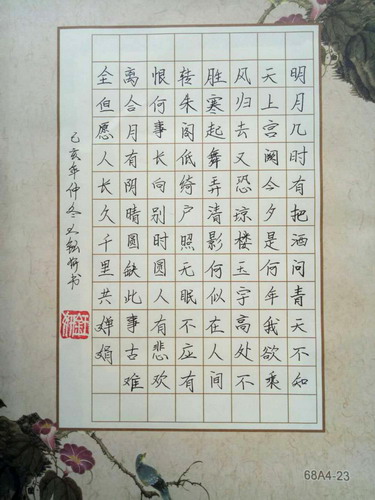 明月几时有把酒问青天不知
天上宫阙今夕是何年我欲乘
风归去又恐琼楼玉宇高处不
胜寒起舞弄清影何似在人间
转朱阁低绮户照无眠不应有
恨何事长向别时圆人有悲欢
离合月有阴晴圆缺此事古难
全但愿人长久千里共婵娟
己亥年仲冬书
68A4-23